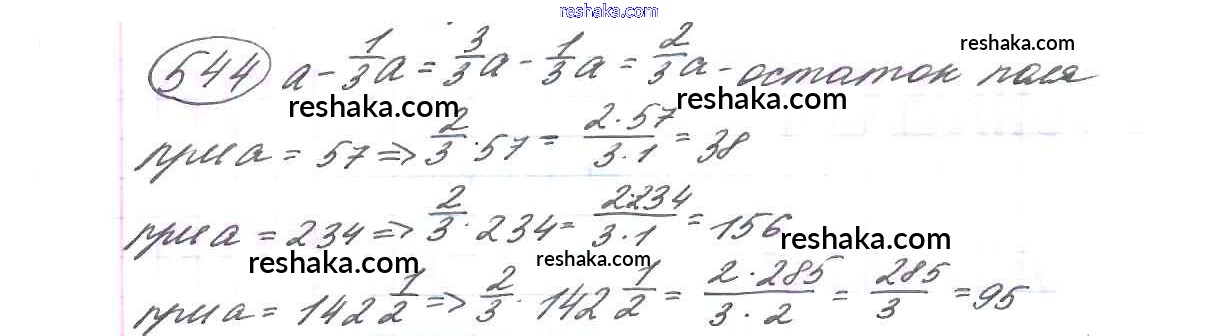 reshaka.com
544 a - 1/3 a = 3/3 a - 1/3 a = 2/3 a - остаток поля
reshaka.com
reshaka.com reshaka.com
при a = 57 => 2/3 · 57 = 2·57/3·1 = 38
при a = 234 => 2/3 · 234 = 2·234/3·1 = 156
reshaka.com
reshaka.com reshaka.com
при a = 142 1/2 => 2/3 · 142 1/2 = 2·285/3·2 = 285/3 = 95